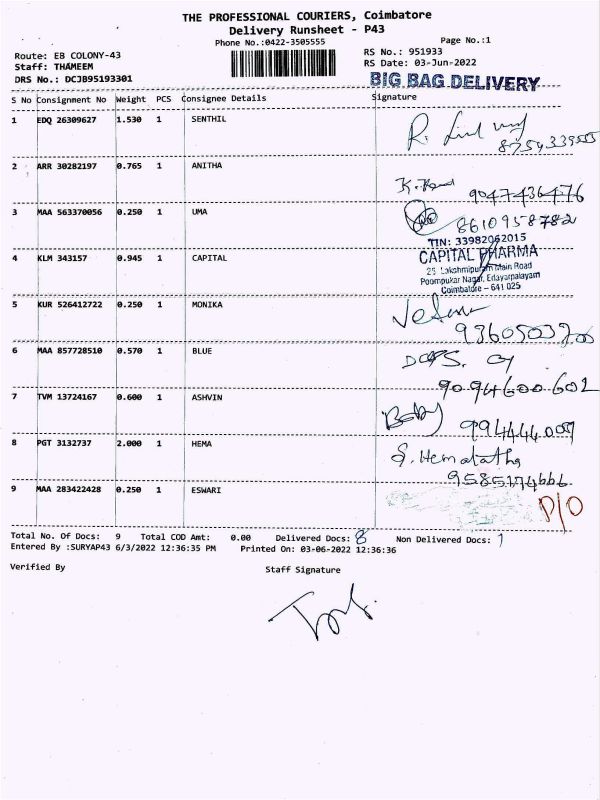 THE PROFESSIONAL COURIERS, Coimbatore
Delivery Runsheet - P43
Phone No.:0422-3505555
Page No.:1
Route: EB COLONY-43
RS No.: 951933
Staff: THAMEEM
RS Date: 03-Jun-2022
DRS No.: DCJB95193301
BIG BAG DELIVERY
S No Consignment No Weight PCS Consignee Details Signature
1 EDQ 26309627 1.530 1 SENTHIL
R.
2 ARR 30282197 0.765 1 ANITHA
9047436476
3 MAA 563370056 0.250 1 UMA
8610958782
TIN: 33982062015
4 KLM 343157 0.945 1 CAPITAL
CAPITAL PHARMA
25 Lakshmipuram Main Road
Poompukar Nagar, Edayarpalayam
Coimbatore - 641 025
5 KUR 526412722 0.250 1 MONIKA
6 MAA 857728510 0.570 1 BLUE
9094600602
7 TVM 13724167 0.600 1 ASHVIN
8 PGT 3132737 2.000 1 HEMA
S. Hemalatha
9585174666
9 MAA 283422428 0.250 1 ESWARI
P/O
Total No. Of Docs: 9 Total COD Amt: 0.00 Delivered Docs: 8 Non Delivered Docs: 1
Entered By :SURYAP43 6/3/2022 12:36:35 PM Printed On: 03-06-2022 12:36:36
Verified By
Staff Signature